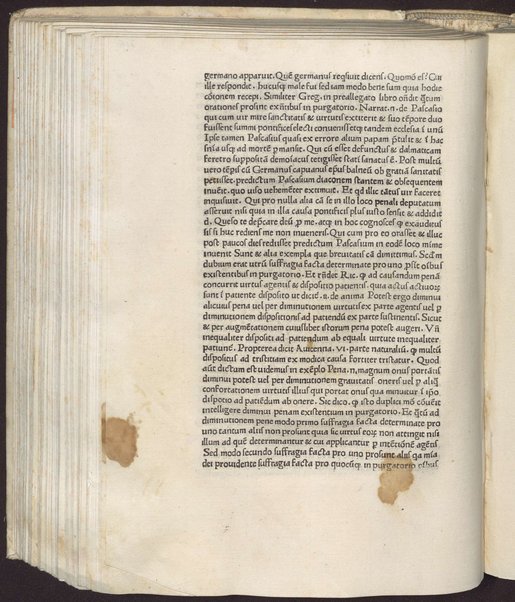 germano apparuit. Quē germanus reqsiuit dicens. Quomō es? Cui
ille respondit. hucusq̄ male fui sed iam modo bene sum quia hodie
cōionem recepi. Similiter Greg. in preallegato libro oñdit q̄tum
orationes prosint exñtibus in purgatorio. Narrat .n. de Pascasio
qui cum uir mire sanctitatis & uirtutis extiterit & suo tēpore duo
fuissent summi pontifices electi conuenissetq̄ tandem ecclesia ī unū
Ipse tamen Pascasius quasi ex errore alium papam p̄tulit & ī hac
sn̄ia usq̄ ad mortē p̄mansit. Qui cū esset defunctus & dalmaticam
feretro suppositā demoniacus tetigisset statī sanatus ē. Post multū
uero tēp̄is cū Germanus capuanus ep̄us balneū ob gratiā sanitatis
petisset predictum Pascasium diaconem stantem & obsequentem
inuēit. quo uiso uehemēter extimuit. Et qd̄ illic tātus uir faceret
inquisiuit. Qui pro nulla alia cā se in illo loco penali deputatum
asseruit nisi quia in illa causa pontificis plus iusto sensit & addidit
d. Queso te dep̄care deū p̄ me. atq̄ in hoc cognosces q̄ exauditus
sis si huc rediens me non inueneris. Qui cum pro eo orasset & illuc
post paucos dies redisset predictum Pascasium in eodē loco mīme
inuenit Sunt & alia exempla que breuitatis cā dimittimus. Secd̄m
dubium erat utrū suffragia facta determinate pro uno p̄sīt oībus
existentibus in purgatorio. Et rñdet Ric. q̄ ad causandum penā
concurrit uirtus agentis & dispositio patientis. quia actus actiuoꝝ
sunt ī patiente disposito ut dicit̄ .ii. de anima Potest ergo diminui
alicuius pena uel per diminutionem uirtutis ex parte agentis uel p̄
diminutionem dispositionis ad patiendū ex parte sustinentis. Sicut
& per augmētationem cuiuslibet istorum pena potest augeri. Vn̄
inequaliter dispositi ad patiendum ab equali uirtute inequaliter
patiunt̄. Propterea dicit Auicenna .vi. parte naturaliū. q̄ multū
dispositus ad tristitiam ex modica causa fortiter tristatur. Quod
aūt dictum est uidemus in exēplo Pena .n. magnum onus portātis
diminui potest uel per diminutionem grauitatis oneris uel p̄ aliq̄
confortationem uirtutis illius qui portat onus qua minuitur ī ip̄o
dispotio ad patiēdum ab onere. Sic dico. q̄ isto duplici mō cōuēit
intelligere diminui penam existentium in purgatorio. Et q̄tū ad
diminutionem pene modo primo suffragia facta determinate pro
uno tantum aliis non prosunt quia sic uirtus eoꝝ non attingit nisi
illum ad quē determinantur & cui applicantur p̄ intētionē agētis
Sed modo secundo suffragia facta pro uno prosunt aliis qa mīa
dei prouidente suffragia facta pro quocūq̄ in purgatorio